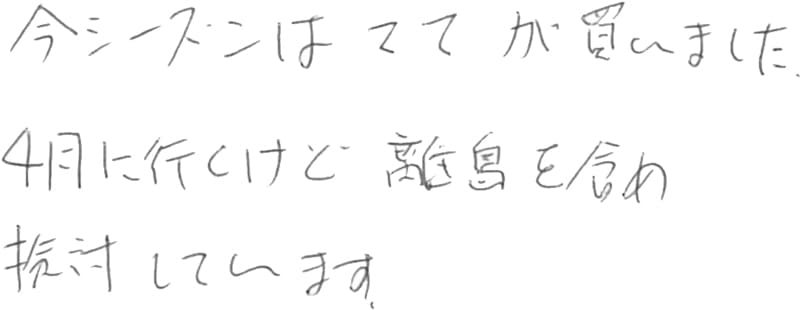 今シーズンはててが買いました.
4月に行くけど離島を含め
検討しています.